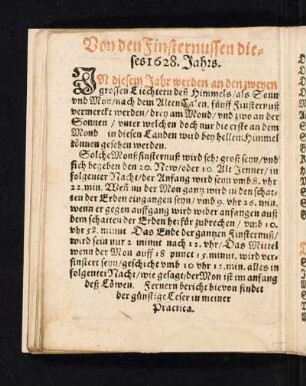 Von den Finsternussen die-
ses 1628. Jahrs.
IN diesem Jahr werden an den zweyen
grossen Liechtern deß Himmels / als Sonn
vnd Mon / nach dem Alten Ca'en. fünff Finsternuß
vermerckt werden / drey am Mond / vnd zwo an der
Sonnen / vnter welchen doch nur die erste an dem
Mond in diesen Landen wird bey hellem Himmel
können gesehen werden.
Solche Monßfinsternuß wird sehr groß seyn / vnd
sich begeben den 20. New / oder 10. Alt Jenner / in
folgenter Nacht / der Anfang wird seyn vmb 8. vhr
22. min. Weñ nu der Mon gantz wird in den schat-
ten der Erden eingangen seyn / vmb 9. vhr 26. min.
wenn er gegen auffgang wird wider anfangen auß
dem schatten der Erden herfür zubrechen / vmb 10.
vhr 58. minut Das Ende der gantzen Finsternuß /
wird sein nur 2 minut nach 12. vhr / Das Mittel
wenn der Mon auff 18 punct 15. minut. wird ver-
finstert seyn / geschicht vmb 10 vhr 12. min. alles in
folgenter Nacht / wie gesagt / der Mon ist im anfang
deß Löwen. Fernern bericht hievon findet
der günstige Leser in meiner
Practica.